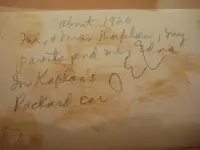 about 1920
Mr. & Mrs. Kaplan, my
parents and me, Edna
In Kaplan's
Packard car